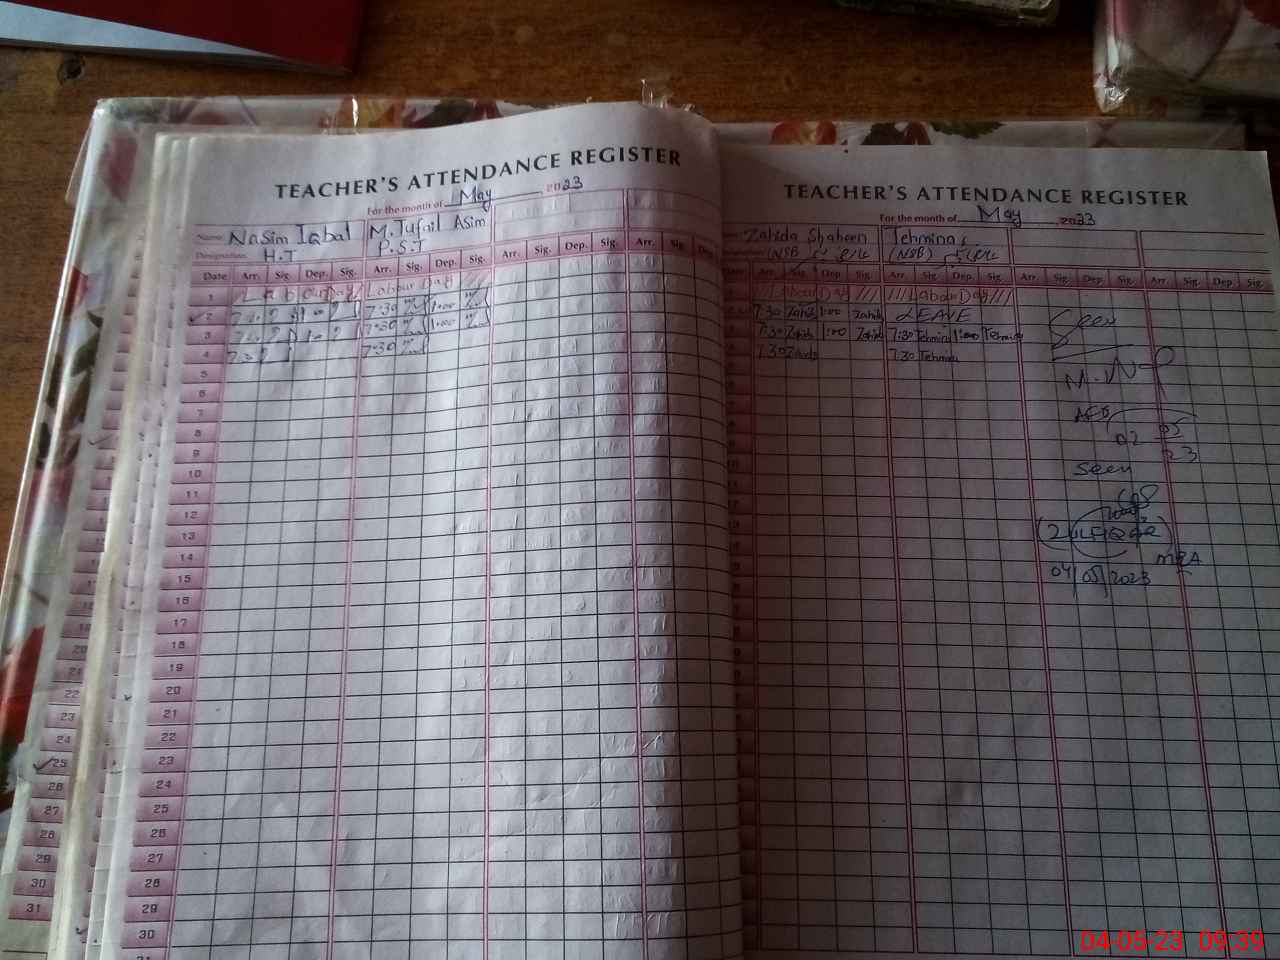 TEACHER'S ATTENDANCE REGISTER
For the month of May, 2023
Name Nasim Iqbal M. Tufail Asim
Designation H.T P.S.T
Date Arr. Sig. Dep. Sig. Arr. Sig. Dep. Sig. Arr. Sig. Dep. Sig. Arr. Sig. Dep.
1 Labour Day Labour Day
2 7:30 1:00
3 7:30 1:00
4 7:30
5
6
7
8
9
10
11
12
13
14
15
16
17
18
19
20
21
22
23
24
25
26
27
28
29
30
31
TEACHER'S ATTENDANCE REGISTER
For the month of May, 2023
Zahida Shaheen Tehmina
(NSB) (NSB)
Arr. Sig. Dep. Sig. Arr. Sig. Dep. Sig. Arr. Sig. Dep. Sig. Arr. Sig. Dep. Sig.
Labour Day Labour Day
7:30 Zahida 1:00 Zahida LEAVE
7:30 Zahida 1:00 Zahida 7:30 Tehmina 1:00 Tehmina
7:30 Zahida 7:30 Tehmina
Seen
AEO
02 05 23
Seen
(ZULFIQAR)
MEA
04/05/2023
20
21
22
23
24
25
26
27
28
29
30
31
04-05-23 09:39